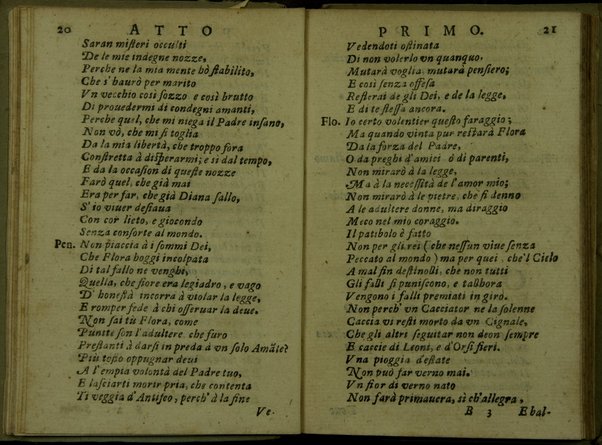 20 ATTO
Saran misteri occulti
De le mie indegne nozze,
Perche ne la mia mente hò stabilito,
Che s'haurò per marito
Vn vecchio così sozzo e così brutto
Di prouedermi di condegni amanti,
Perche quel, che mi niega il Padre insano,
Non vò, che mi si toglia
Da la mia libertà, che troppo fora
Constretta à disperarmi; e si dal tempo,
E da la occasion di queste nozze
Farò quel, che già mai
Era per far, che già Diana fallo,
S'io viuer desiaua
Con cor lieto, e giocondo
Senza consorte al mondo.
Pen. Non piaccia à i sommi Dei,
Che Flora hoggi incolpata
Di tal fallo ne venghi,
Quella, che fiore era legiadro, e vago
D'honestà incorra à violar la legge,
E romper fede à chi osseruar la deue.
Non sai tù Flora, come
Punite son l'adultere che furo
Prestanti à darsi in preda à vn solo Amāte?
Più tosto oppugnar deui
A l'empia volontà del Padre tuo,
E lasciarti morir pria, che contenta
Ti veggia d'Antifeo, perch'à la fine
Ve-
PRIMO. 21
Vedendoti ostinata
Di non volerlo vn quanquo,
Mutarà voglia, mutarà pensiero;
E così senza offesa
Resterai de gli Dei, e de la legge,
E di te stessa ancora.
Flo. Io certo volentier questo faraggio;
Ma quando vinta pur restarà Flora
Da la forza del Padre,
O da preghi d'amici ò di parenti,
Non mirarò à la legge,
Ma à la necessità de l'amor mio;
Non mirarò à le pietre, che si denno
A le adultere donne, ma diraggio
Meco nel mio coraggio.
Il patibolo è fatto
Non per gli rei (che nessun viue senza
Peccato al mondo) ma per quei, che'l Cielo
A mal fin destinolli, che non tutti
Gli falli si puniscono, e talhora
Vengono i falli premiati in giro.
Non perch'vn Cacciator ne la solenne
Caccia vi resti morto da vn Cignale,
Che gli altri seguitar non deon sempre
E caccie di Leoni, e d'Orsi fieri.
Vna pioggia d'estate
Non può far verno mai.
Vn fior di verno nato
Non farà primauera, sì ch'allegra,
B 3 Ebal-